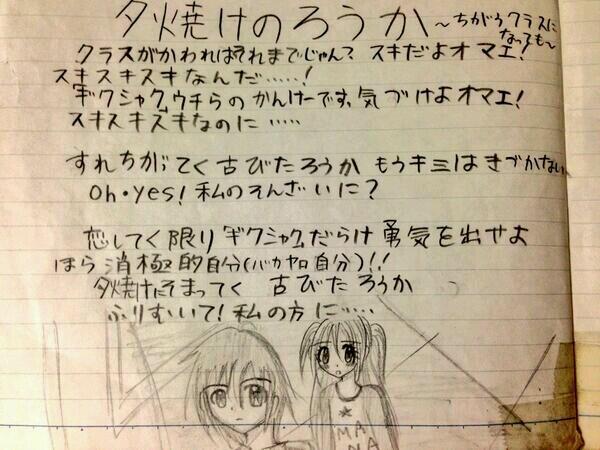 夕焼けのろうか 〜ちがうクラスに
なっても〜
クラスがかわればそれまでじゃん? スキだよオマエ!
スキスキスキなんだ……!
ギクシャク、ウチらのかんけーです。気づけよオマエ!
スキスキスキなのに……
すれちがってく古びたろうか もうキミはきづかない
Oh・yes! 私のそんざいに?
恋してく限り ギクシャクだらけ 勇気を出せよ
ほら消極的自分(バカヤロ自分)!!
夕焼けにそまってく 古びたろうか
ふりむいて! 私の方に……
MA
NA